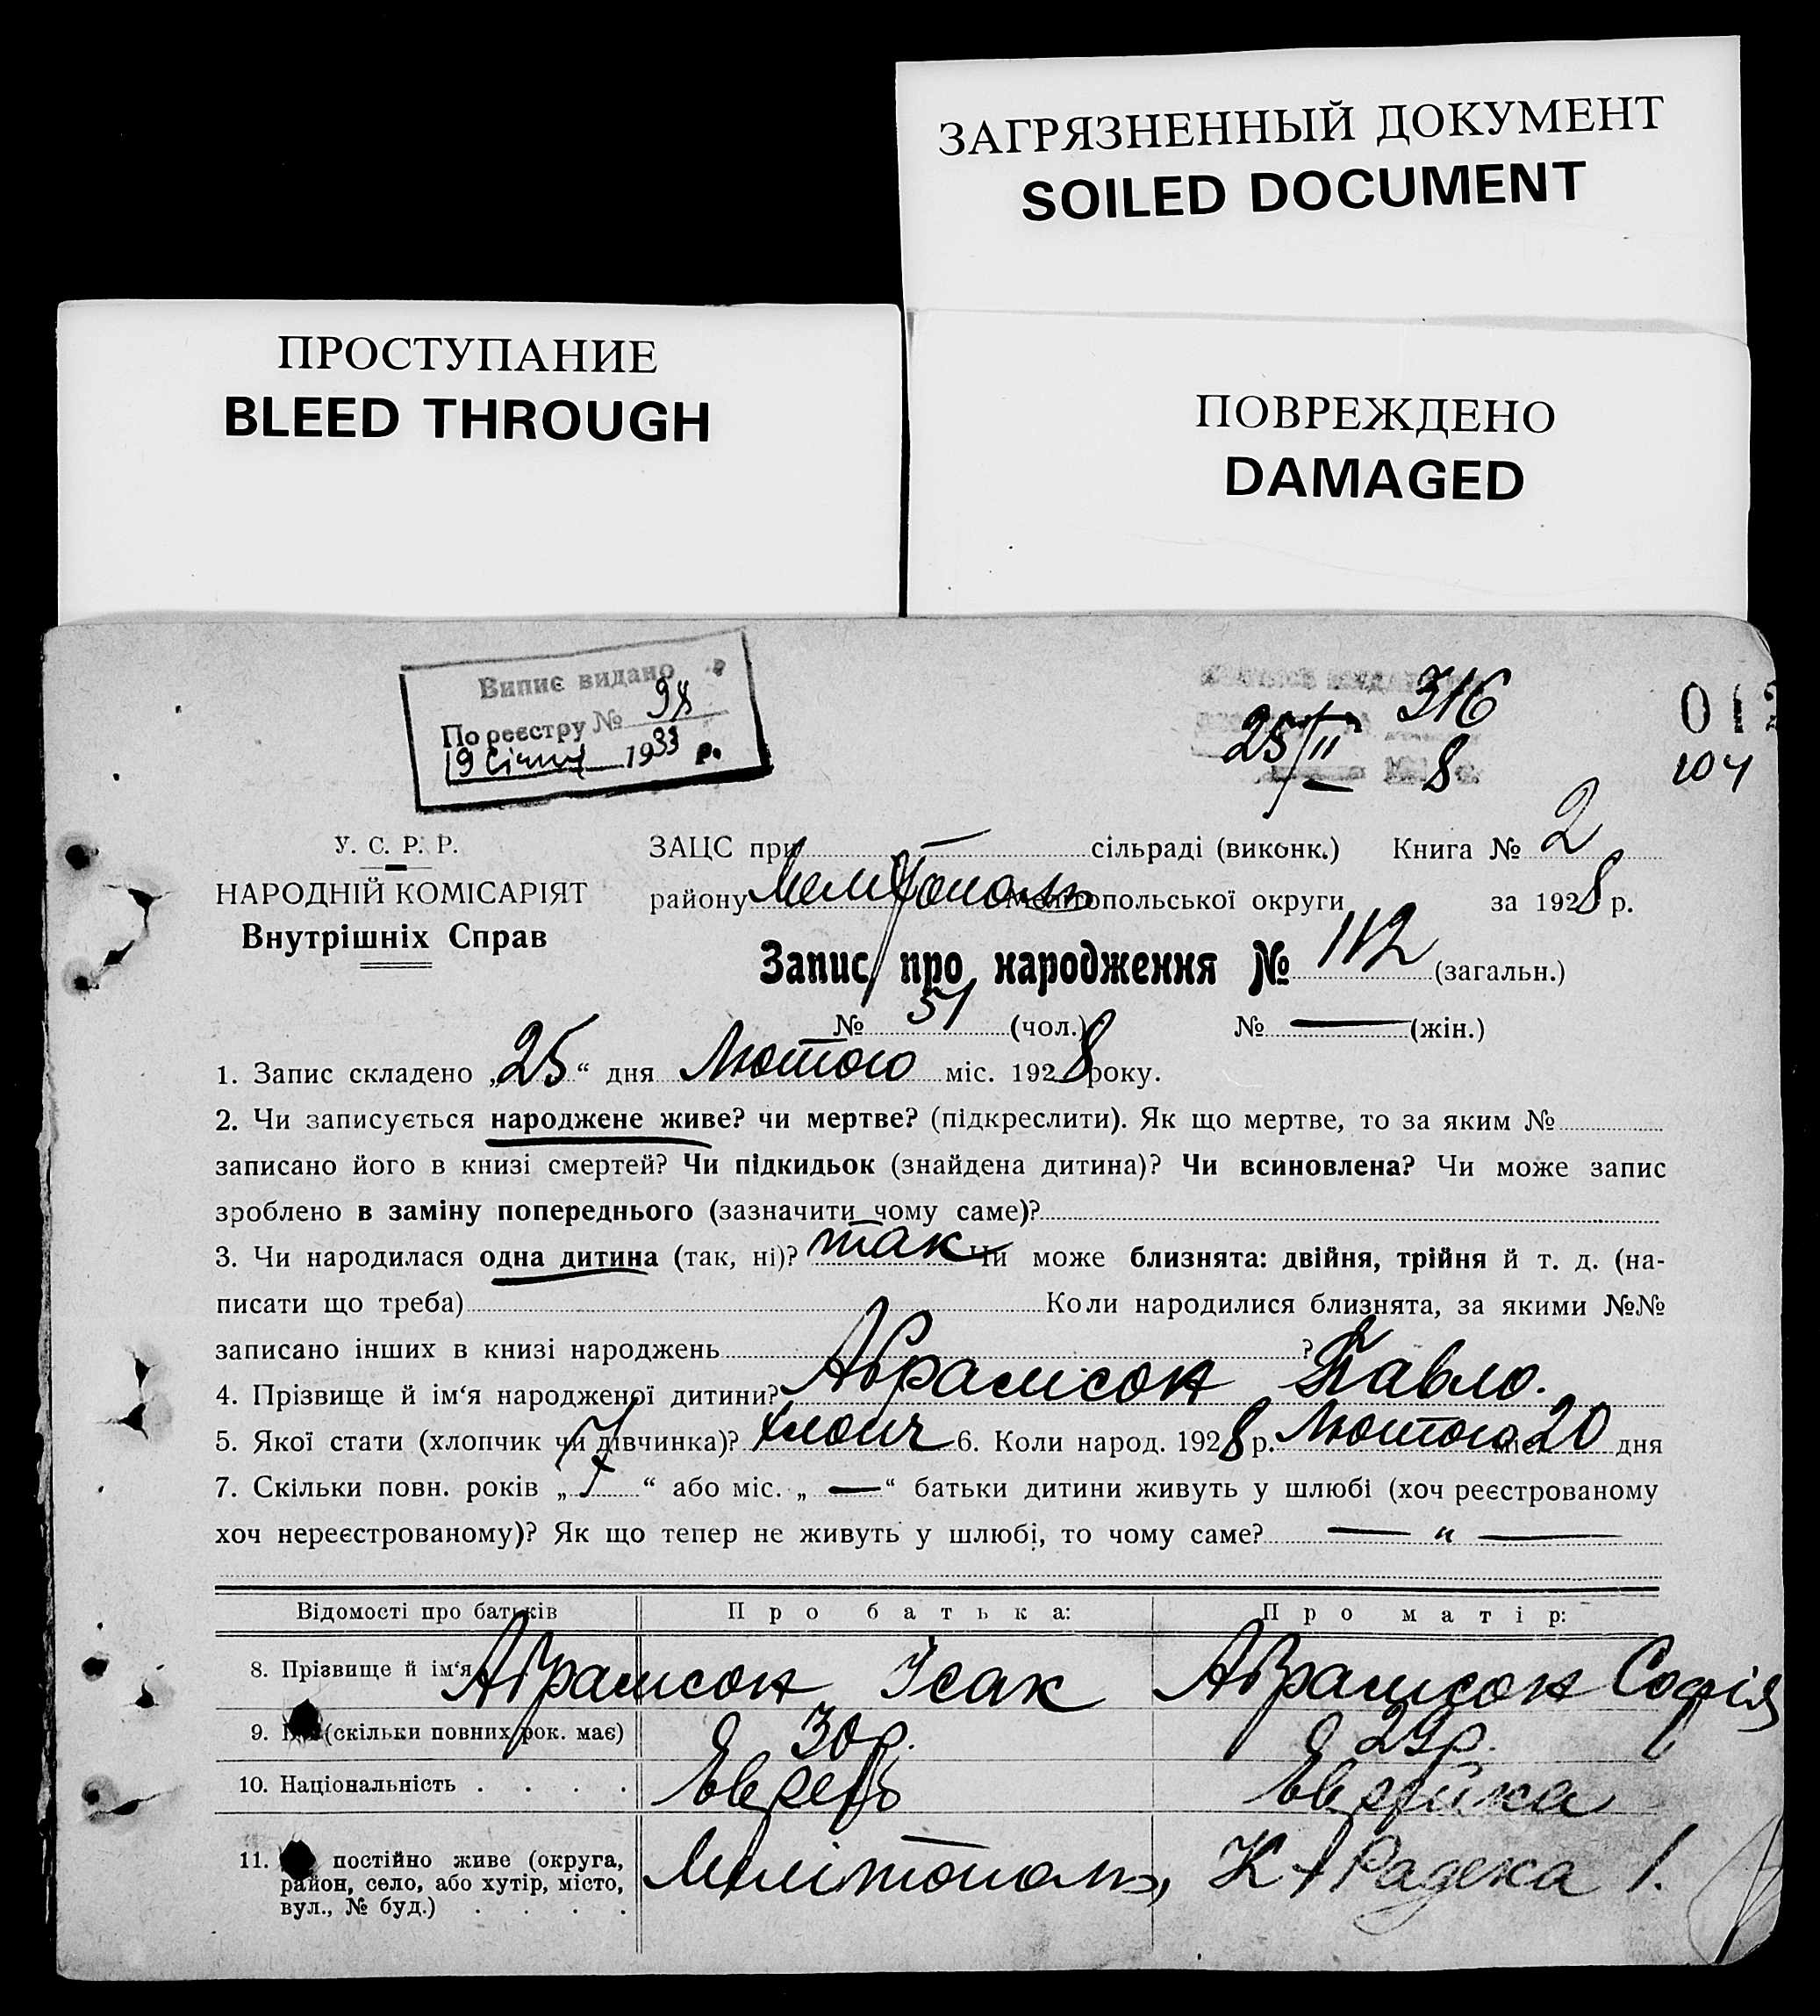 ЗАГРЯЗНЕННЫЙ ДОКУМЕНТ
SOILED DOCUMENT
ПРОСТУПАНИЕ
BLEED THROUGH
ПОВРЕЖДЕНО
DAMAGED
Випис видано
По реєстру № 98
19 січня 1933 р.
316
25/II 8
104
У. С. Р. Р.
НАРОДНІЙ КОМІСАРІЯТ
Внутрішніх Справ
ЗАЦС при — сільраді (виконк.) Книга № 2
району Мелітополь Мелітопольської округи за 1928 р.
Запис про народження № 112 (загальн.)
№ 51 (чол.) № — (жін.)
1. Запис складено „25“ дня Лютого міс. 1928 року.
2. Чи записується народжене живе? чи мертве? (підкреслити). Як що мертве, то за яким №
записано його в книзі смертей? Чи підкидьок (знайдена дитина)? Чи всиновлена? Чи може запис
зроблено в заміну попереднього (зазначити чому саме)?
3. Чи народилася одна дитина (так, ні)? так Чи може близнята: двійня, трійня й т. д. (на-
писати що треба) Коли народилися близнята, за якими №№
записано інших в книзі народжень ?
4. Прізвище й ім‘я народженої дитини? Абрамсон Павло.
5. Якої стати (хлопчик чи дівчинка)? хлопч 6. Коли народ. 1928 р. Лютого 20 дня
7. Скільки повн. років „7“ або міс. „—“ батьки дитини живуть у шлюбі (хоч реєстрованому
хоч нереєстрованому)? Як що тепер не живуть у шлюбі, то чому саме? — „ —
Відомості про батьків Про батька: Про матір:
8. Прізвище й ім‘я Абрамсон Ісак Абрамсон Софія
9. (скільки повних рок. має) 30 р. 29 р.
10. Національність . . . . Еврей Еврейка
11. постійно живе (округа,
район, село, або хутір, місто,
вул., № буд.) . . . . Мелітополь, К. Радека 1.